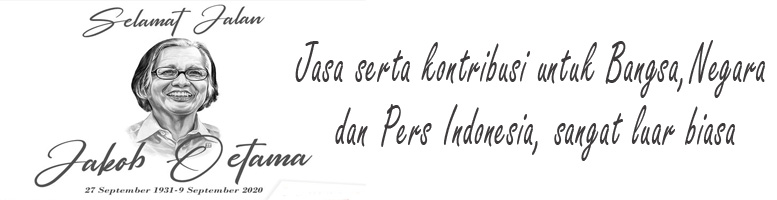 Selamat Jalan
Jakob Oetama
27 September 1931-9 September 2020
Jasa serta kontribusi untuk Bangsa, Negara
dan Pers Indonesia, sangat luar biasa